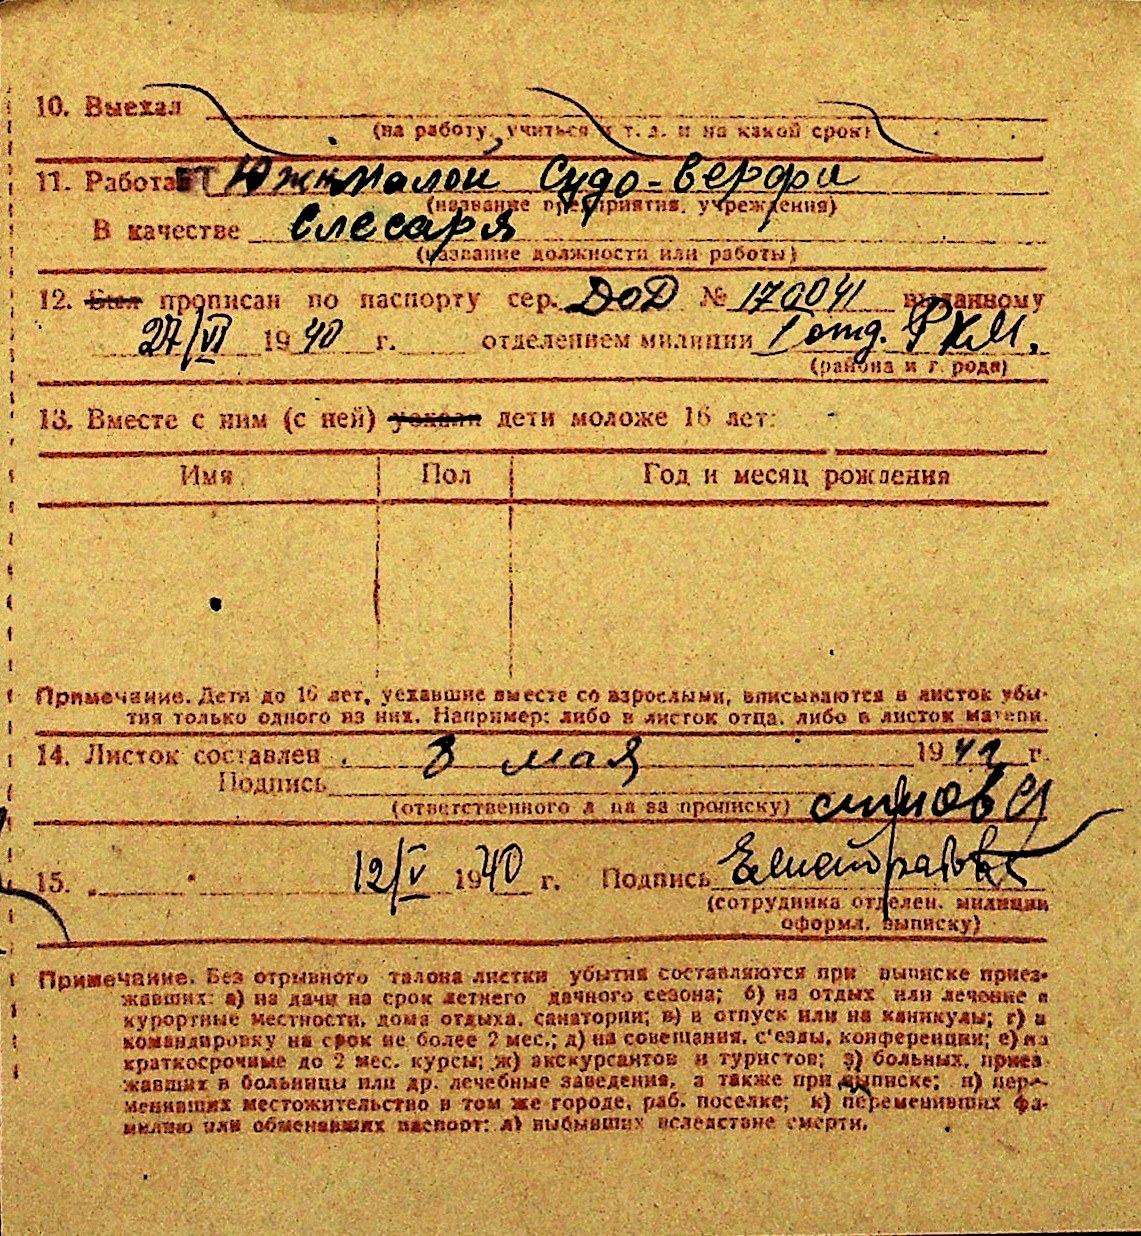 10. Выехал
(на работу, учиться и т. д. и на какой срок)
11. Работает Южн малой Судо-верфи
(название предприятия, учреждения)
В качестве слесаря
(название должности или работы)
12. Был прописан по паспорту сер. ДОД № 170041 выданному
27/VI 1940 г. отделением милиции 1 отд. РКМ.
(района и города)
13. Вместе с ним (с ней) уехали дети моложе 16 лет:
Имя Пол Год и месяц рождения
Примечание. Дети до 16 лет, уехавшие вместе со взрослыми, вписываются в листок убы-
тия только одного из них. Например: либо в листок отца, либо в листок матери.
14. Листок составлен 8 мая 1941 г.
Подпись
(ответственного лица за прописку)
15. 12/V 1940 г. Подпись
(сотрудника отделен. милиции
оформл. выписку)
Примечание. Без отрывного талона листки убытия составляются при выписке приез-
жавших: а) на дачи на срок летнего дачного сезона; б) на отдых или лечение в
курортные местности, дома отдыха, санатории; в) в отпуск или на каникулы; г) в
командировку на срок не более 2 мес.; д) на совещания, с'езды, конференции; е) на
краткосрочные до 2 мес. курсы; ж) экскурсантов и туристов; з) больных, приез-
жавших в больницы или др. лечебные заведения, а также при выписке; и) пере-
менивших местожительство в том же городе, раб. поселке; к) переменивших фа-
милию или обменявших паспорт; л) выбывших вследствие смерти.